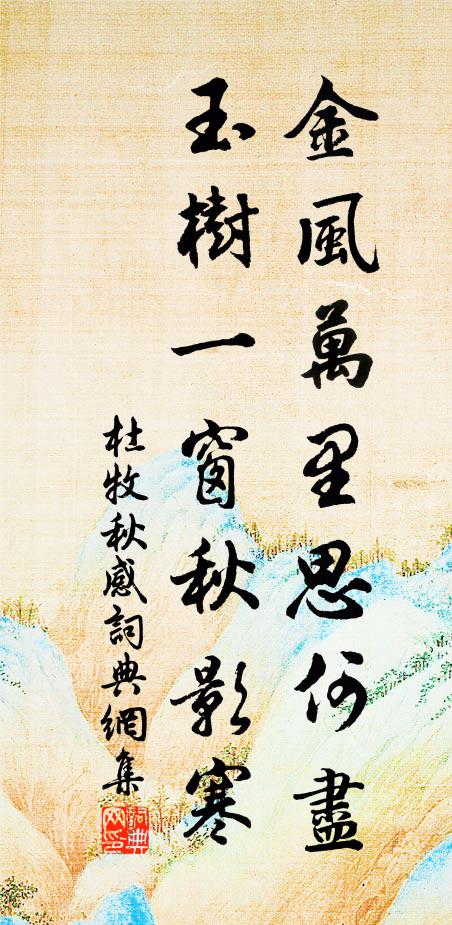 金風萬里思何盡
玉樹一窗秋影寒
杜牧秋感詞典網集
詞典
网印